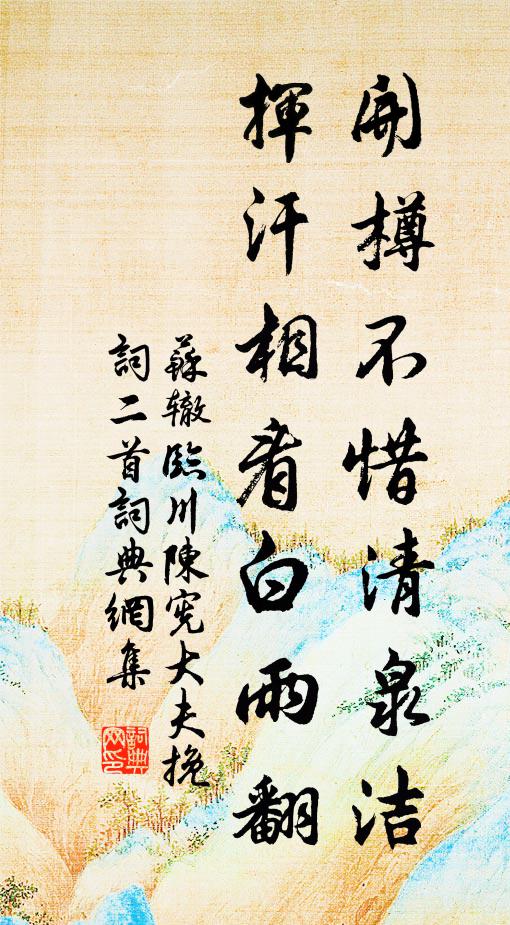 開樽不惜清泉洁
揮汗相看白雨翻
蘇辙臨川陳憲大夫挽
詞二首詞典網集
詞典
网印